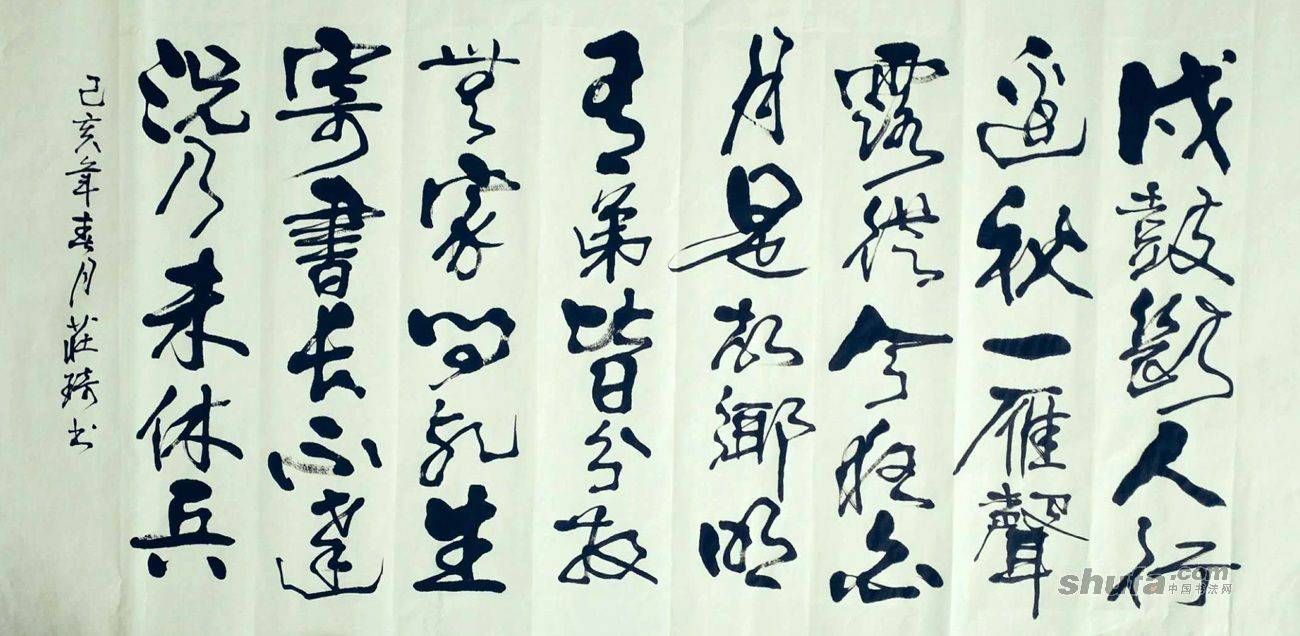 戍鼓斷人行
邊秋一雁聲
露從今夜白
月是故鄉明
有弟皆分散
無家問死生
寄書長不達
況乃未休兵
己亥年春月莊琦书
shufa.com
中国书法网